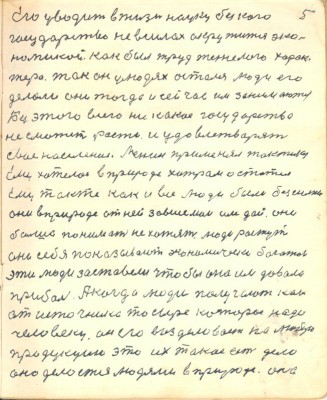 5
Его уводит в жизни науку бы кого
государство не в силах окружится эко-
номикой. как был труд тяжелого харак-
тера. так он у людях остался люди его
делали они тогда и сейчас им занимаются
Без этого всего ни какае государства
не сможит расть и удовлетварять
свае население. Ленин применял тактику
Ему хателось в природе хитрам остатся
Ему также как и все люди были
они в природе от ней зависемы им дай. они
больше понимать не хотят люди растут
они себя показывают эканомически богатой
эти люди заставели чтобы она им довала
прибыл. А когда люди получают как
от источника то сыре которое надо
человеку. он его возделовает на любую
продукцию это их такое есть дело
оно делается людями в природе. она